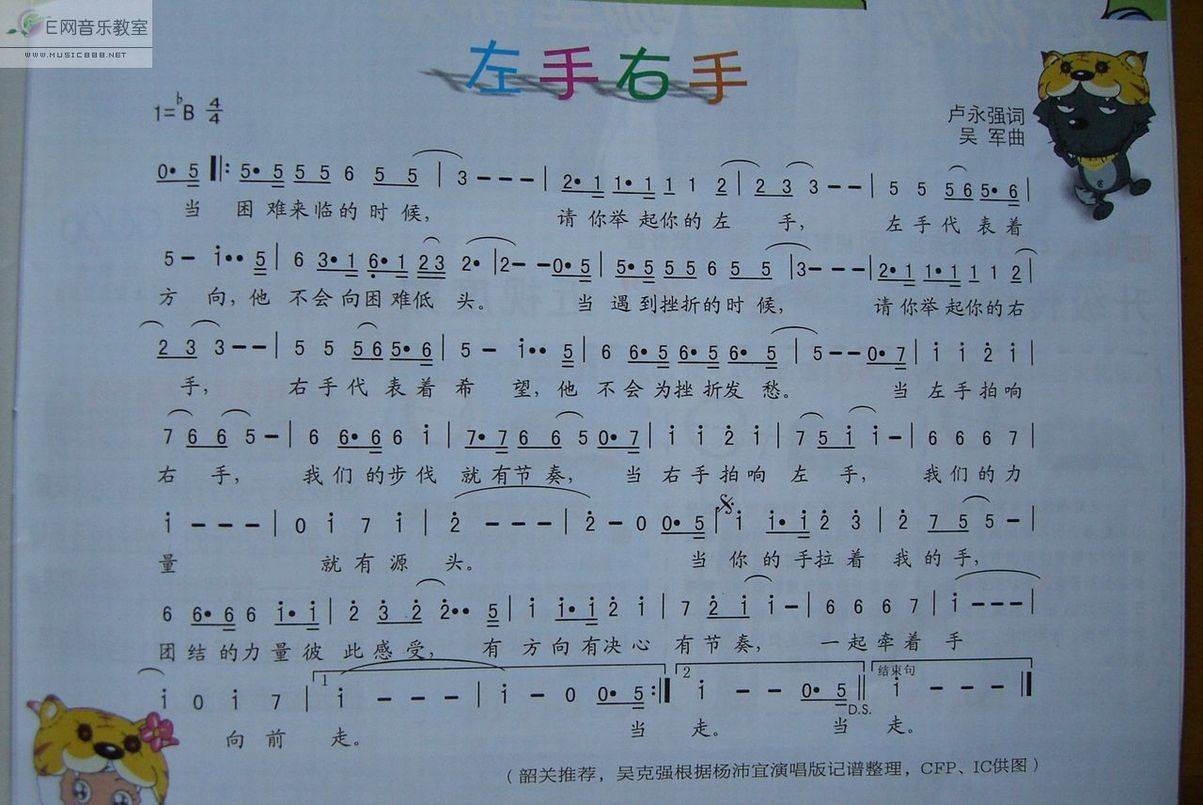 E网音乐教室
WWW.MUSIC888.NET
左手右手
1=♭B 4/4
卢永强词
吴 军曲
0· 5 ‖: 5· 5 5 5 6 5 5 | 3 - - - | 2· 1 1· 1 1 1 2 | 2 3 3 - - | 5 5 5 6 5· 6 |
当 困难来临的时候, 请你举起你的左 手, 左手代表着
5 - i·· 5 | 6 3· 1 6· 1 2 3 2· | 2 - - 0· 5 | 5· 5 5 5 6 5 5 | 3 - - - | 2· 1 1· 1 1 1 2 |
方 向,他 不会向困难低 头。 当 遇到挫折的时候, 请你举起你的右
2 3 3 - - | 5 5 5 6 5· 6 | 5 - i·· 5 | 6 6· 5 6· 5 6· 5 | 5 - - 0· 7 | i i 2 i |
手, 右手代表着希 望,他 不会为挫折发愁。 当 左手拍响
7 6 6 5 - | 6 6· 6 6 i | 7· 7 6 6 5 0· 7 | i i 2 i | 7 5 i i - | 6 6 6 7 |
右 手, 我们的步伐 就有节奏, 当 右手拍响 左 手, 我们的力
i - - - | 0 i 7 i | 2 - - - | 2 - 0 0· 5 | i i· i 2 3 | 2 7 5 5 - |
量 就有源 头。 当 你的手拉着 我的手,
6 6· 6 6 i· i | 2 3 2 2·· 5 | i i· i 2 i | 7 2 i i - | 6 6 6 7 | i - - - |
团结的力量彼 此感受, 有 方向有决心 有节奏, 一起牵着 手
i 0 i 7 | 1 i - - - | i - 0 0· 5 :‖ 2 i - - 0· 5 ‖ 结束句 i - - - ‖
D.S.
向前 走。 当 走。 当 走。
(韶关推荐, 吴克强根据杨沛宜演唱版记谱整理, CFP、IC供图)